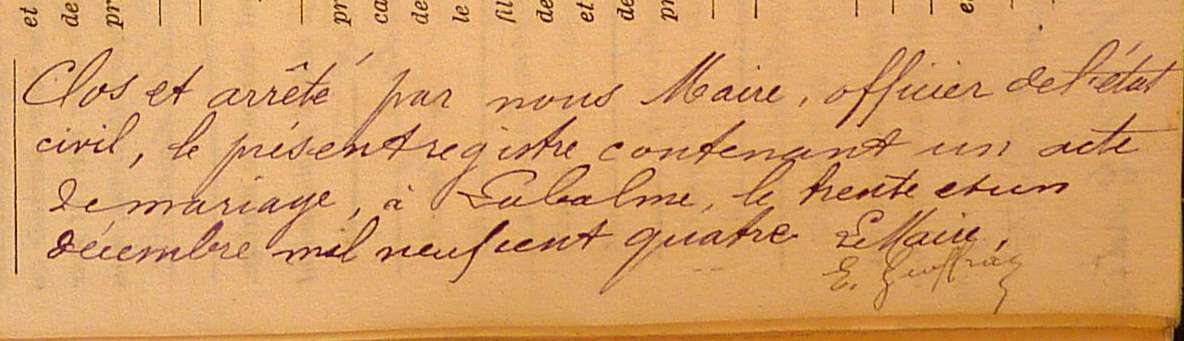 et
de
pr
pr
ca
de
le
fil
de
et
de
pr
Clos et arrêté par nous Maire, officier de l'état
civil, le présent registre contenant un acte
de mariage, à Labalme, le trente et un
décembre mil neuf cent quatre Le Maire,
E.